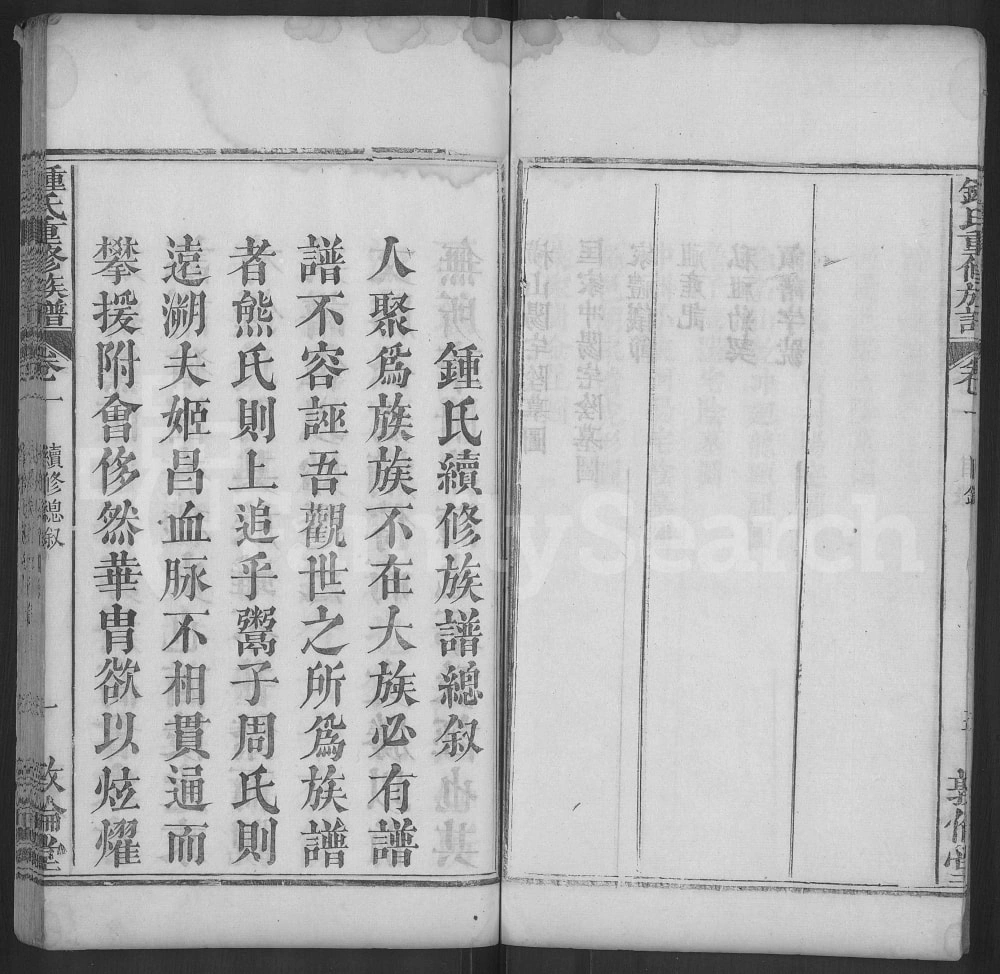 鍾氏重修族譜
卷一
鍾氏續修族譜總叙
人聚爲族族不在大族必有譜
譜不容誣吾觀世之所爲族譜
者熊氏則上追乎鬻子周氏則
遠溯夫姬昌血脉不相貫通而
攀援附會侈然華胄欲以炫燿
鍾氏重修族譜
卷一
續修總叙
一
敦倫堂
FamilySearch